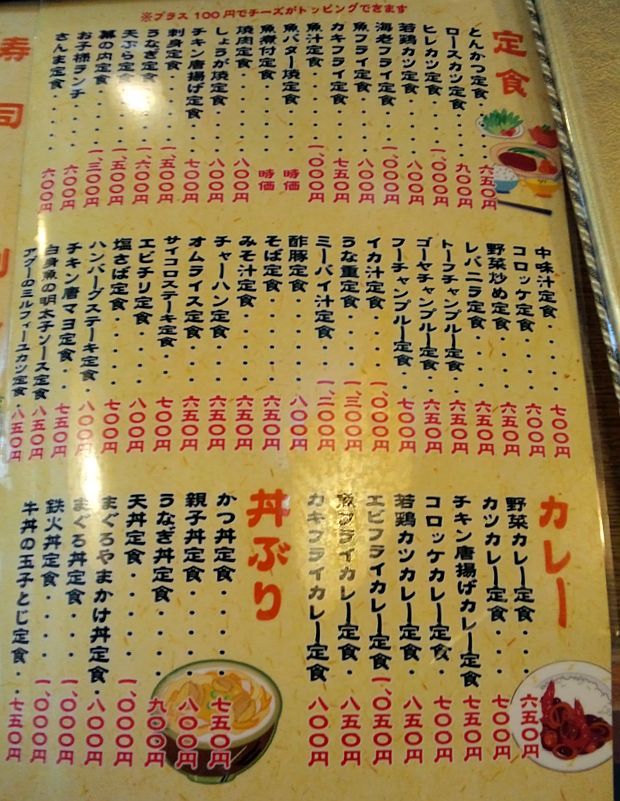 ※プラス100円でチーズがトッピングできます
定食
とんかつ定食 六五〇円
ロースカツ定食 九〇〇円
ヒレカツ定食 一、〇〇〇円
若鶏カツ定食 八〇〇円
海老フライ定食 一、〇〇〇円
魚フライ定食 八〇〇円
カキフライ定食 七五〇円
魚汁定食 一、〇〇〇円
魚バター焼定食 時価
魚煮付定食 時価
焼肉定食 八〇〇円
しょうが焼定食 八〇〇円
チキン唐揚げ定食 七〇〇円
刺身定食 一、五〇〇円
うなぎ定食 一、六〇〇円
天ぷら定食 一、五〇〇円
幕の内定食 一、三〇〇円
お子様ランチ 六〇〇円
さんま定食 六〇〇円
中味汁定食 七〇〇円
コロッケ定食 六〇〇円
野菜炒め定食 六五〇円
レバニラ定食 六五〇円
トーフチャンプルー定食 六五〇円
ゴーヤチャンプルー定食 六五〇円
フーチャンプルー定食 七〇〇円
イカ汁定食 一、〇〇〇円
うな重定食 一、三〇〇円
ミーバイ汁定食 一、二〇〇円
酢豚定食 八〇〇円
そば定食 六五〇円
みそ汁定食 六五〇円
チャーハン定食 六五〇円
オムライス定食 六五〇円
サイコロステーキ定食 八〇〇円
エビチリ定食 七〇〇円
塩さば定食 七〇〇円
ハンバーグステーキ定食 八〇〇円
チキン唐マヨ定食 七五〇円
白身魚の明太子ソース定食 八五〇円
アグーのミルフィーユカツ定食 八五〇円
カレー
野菜カレー定食 六五〇円
カツカレー定食 七五〇円
チキン唐揚げカレー定食 七五〇円
コロッケカレー定食 七〇〇円
若鶏カツカレー定食 八五〇円
エビフライカレー定食 一、〇五〇円
魚フライカレー定食 八五〇円
カキフライカレー定食 八〇〇円
丼ぶり
かつ丼定食 七五〇円
親子丼定食 八〇〇円
うなぎ丼定食 九〇〇円
天丼定食 一、〇〇〇円
まぐろやまかけ丼定食 八〇〇円
まぐろ丼定食 一、〇〇〇円
鉄火丼定食 一、〇〇〇円
牛丼の玉子とじ定食 七五〇円
寿司